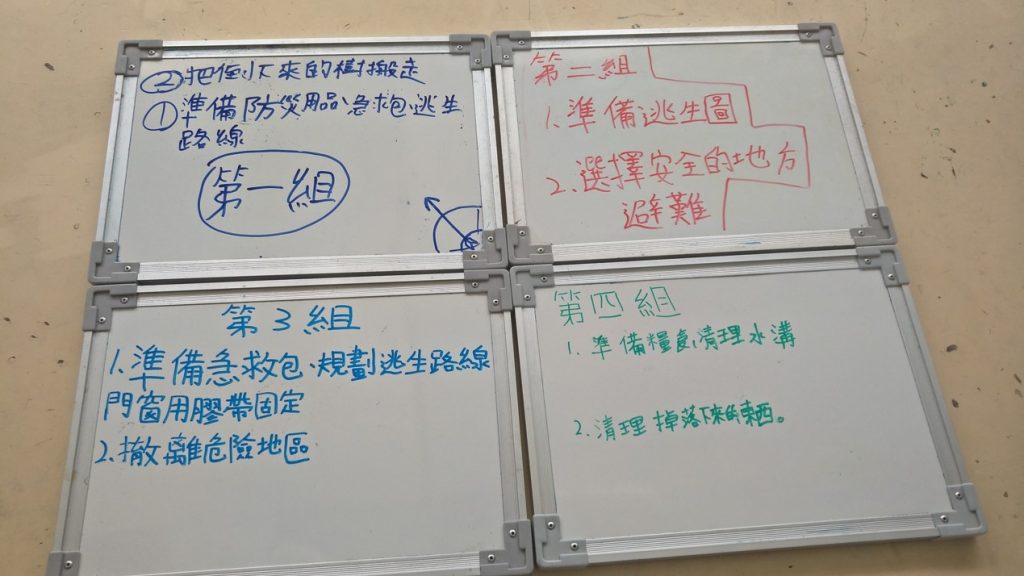 ②把倒下來的樹搬走
①準備防災用品、急救包、逃生
路線
第一組
第二組
1.準備逃生圖
2.選擇安全的地方
避難
第3組
1.準備急救包、規劃逃生路線
門窗用膠帶固定
2.撤離危險地區
第四組
1.準備糧食,清理水溝
2.清理掉落下來的東西。